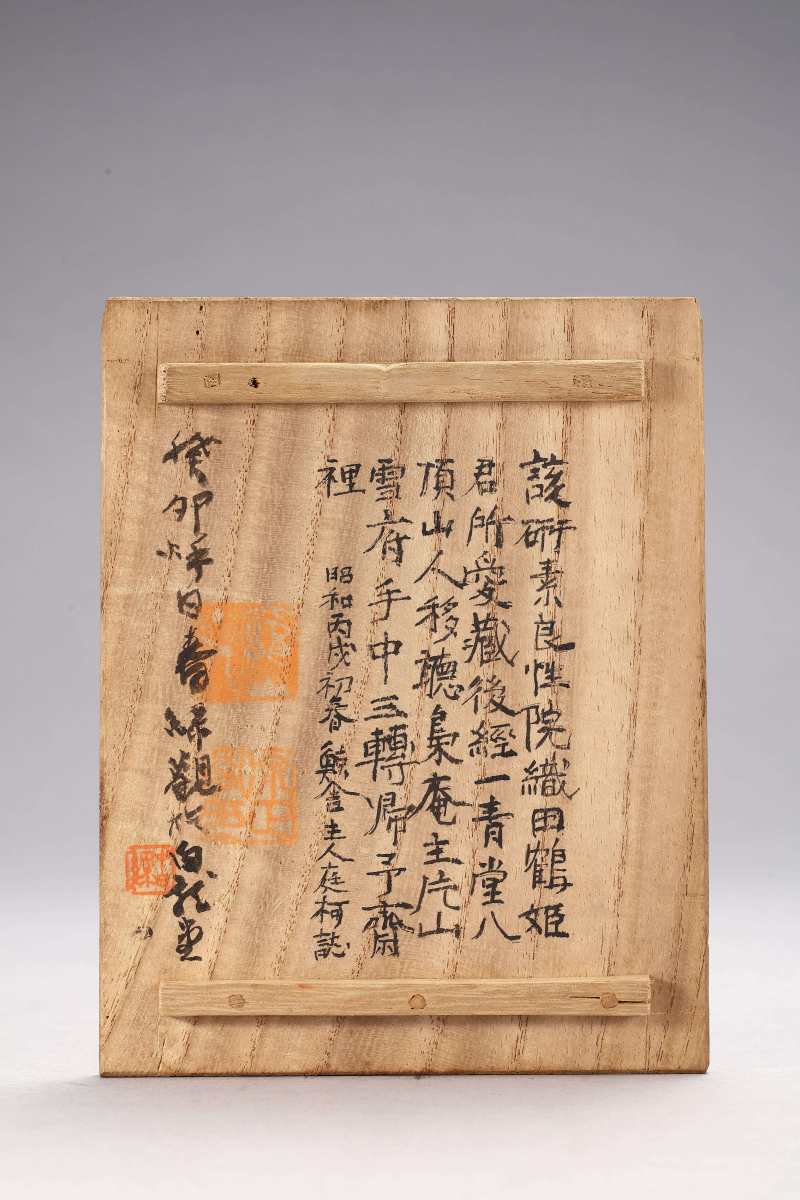 該研素良性院織田鶴姬
君所愛藏後經一青堂八
頂山人移聽梟庵主片山
雪府手中三轉帰予齋
裡
昭和丙戌初春鯨舍主人庭柯誌
癸卯日壽觀於白龍堂